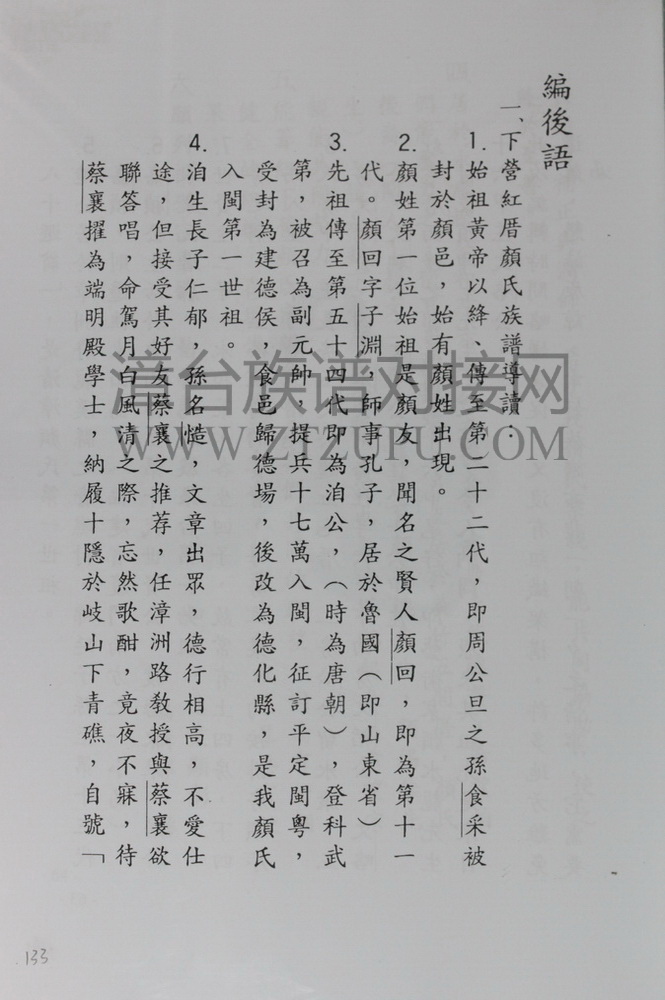 編後語
一、下營紅厝顏氏族譜導讀：
1.始祖黃帝以絳、傳至第二十二代，即周公旦之孫食采被
封於顏邑，始有顏姓出現。
2.顏姓第一位始祖是顏友，聞名之賢人顏回，即為第十一
代。顏回字子淵，師事孔子，居於魯國（即山東省）
3.先祖傳至第五十四代即為洎公，（時為唐朝），登科武
第，被召為副元帥，提兵十七萬入閩，征訂平定閩粵，
受封為建德侯，食邑歸德場，後改為德化縣，是我顏氏
入閩第一世祖。
4.洎生長子仁郁，孫名慥，文章出眾，德行相高，不愛仕
途，但接受其好友蔡襄之推荐，任漳洲路教授與蔡襄欲
聯答唱，命駕月白風清之際，忘然歌酣，竟夜不寐，待
蔡襄擢為端明殿學士，納履十隱於岐山下青礁，自號「
漳台族谱对接网
WWW.ZTZUPU.COM
133